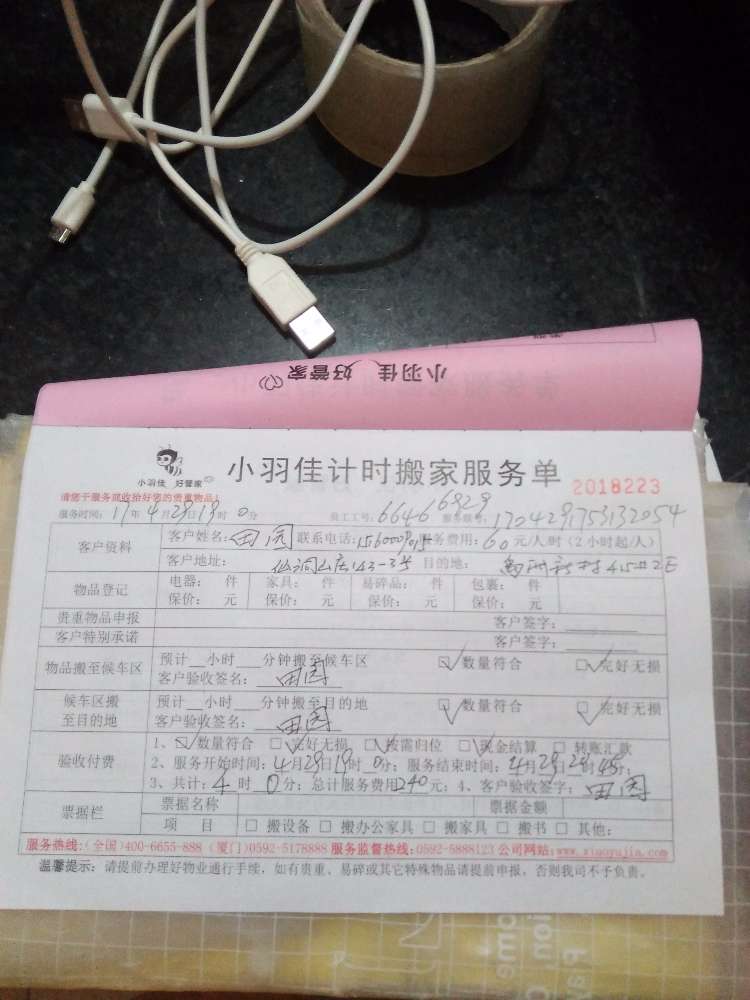 小羽佳 好管家
小羽佳 好管家
小羽佳计时搬家服务单
2018223
请您于服务前收拾好您的贵重物品!
服务时间: 17年4月29日19时0分 员工工号: 6646 6929 服务账号: 1704291753132054
客户资料
客户姓名: 田园 联系电话: 服务费用: 60元/人时(2小时起/人)
客户地址: 仙洞山庄143-3号 目的地:
物品登记
电器: 件 家具: 件 易碎品: 件 包裹: 件
保价: 元 保价: 元 保价: 元 保价: 元
贵重物品申报 客户签字:
客户特别承诺 客户签字:
物品搬至候车区
预计__小时___分钟搬至候车区 ☑数量符合 ☑完好无损
客户验收签名: 田园
候车区搬至目的地
预计__小时___分钟搬至目的地 ☑数量符合 ☑完好无损
客户验收签名: 田园
验收付费
1、☑数量符合 ☑完好无损 ☑按需归位 ☑现金结算 □转账汇款
2、服务开始时间: 4月29日19时0分; 服务结束时间: 4月29日 时 分;
3、共计: 4时0分; 总计服务费用240元; 4、客户验收签字: 田园
票据栏
票据名称 票据金额
项 目 □搬设备 □搬办公家具 □搬家具 □搬书 □其他:
服务热线:(全国)400-6655-888 (厦门)0592-5178888 服务监督热线:0592-5888123 公司网站:www.xiaoyujia.com
温馨提示: 请提前办理好物业通行手续, 如有贵重、易碎或其它特殊物品请提前申报, 否则我司不予负责。